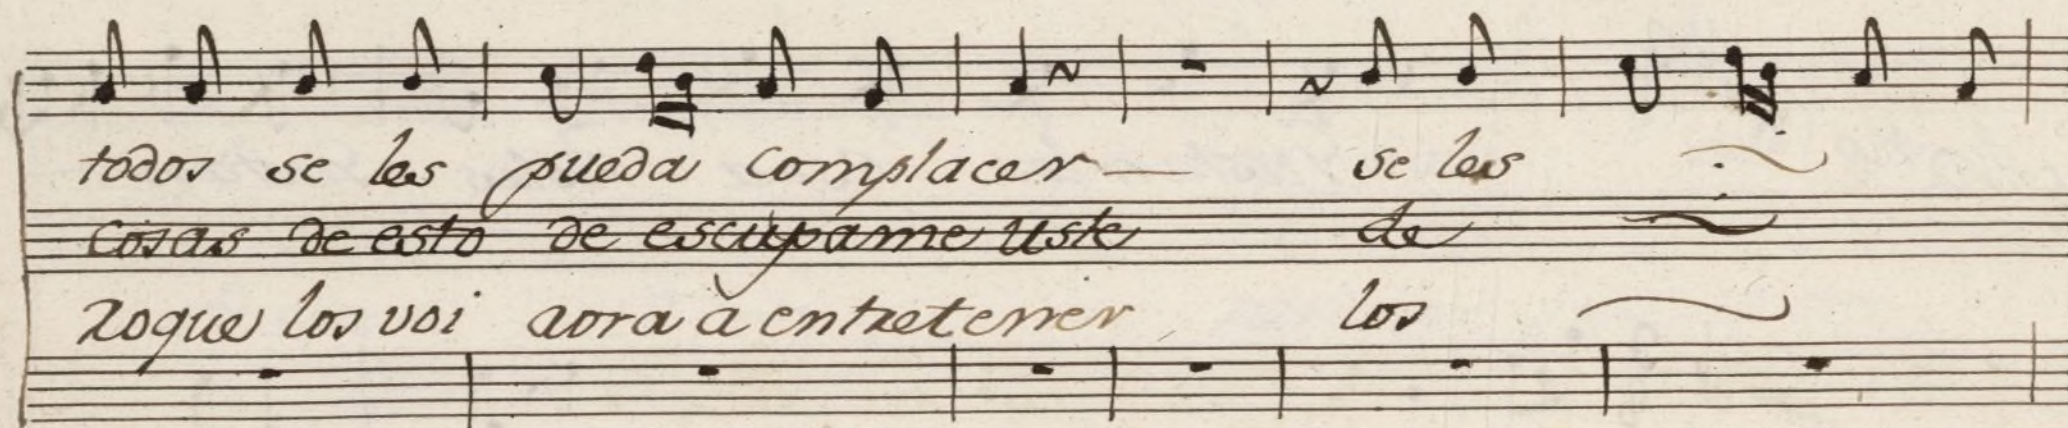 todos se les pueda complacer se les
cosas de esto de escupame uste de
Roque los voi aora à entretener los